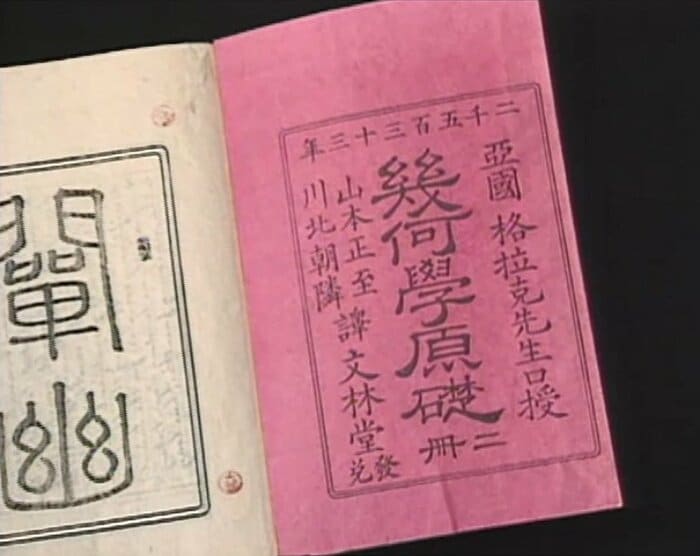 二千五百三十三年
亞國 格拉克先生口授
幾何學原礎
二冊
山本正至
川北朝隣
譯
文林堂
發兌
闡幽